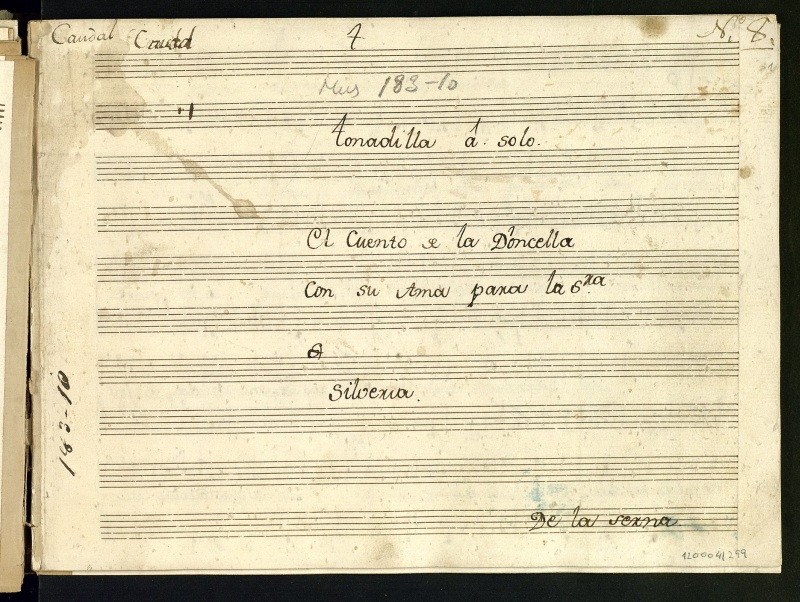 Caudal 4 N.º 8.
Mus 183-10
tonadilla á solo.
El Cuento de la Doncella
Con su Ama para la S.ra
Silveria.
183-10
De la serna
1200041299